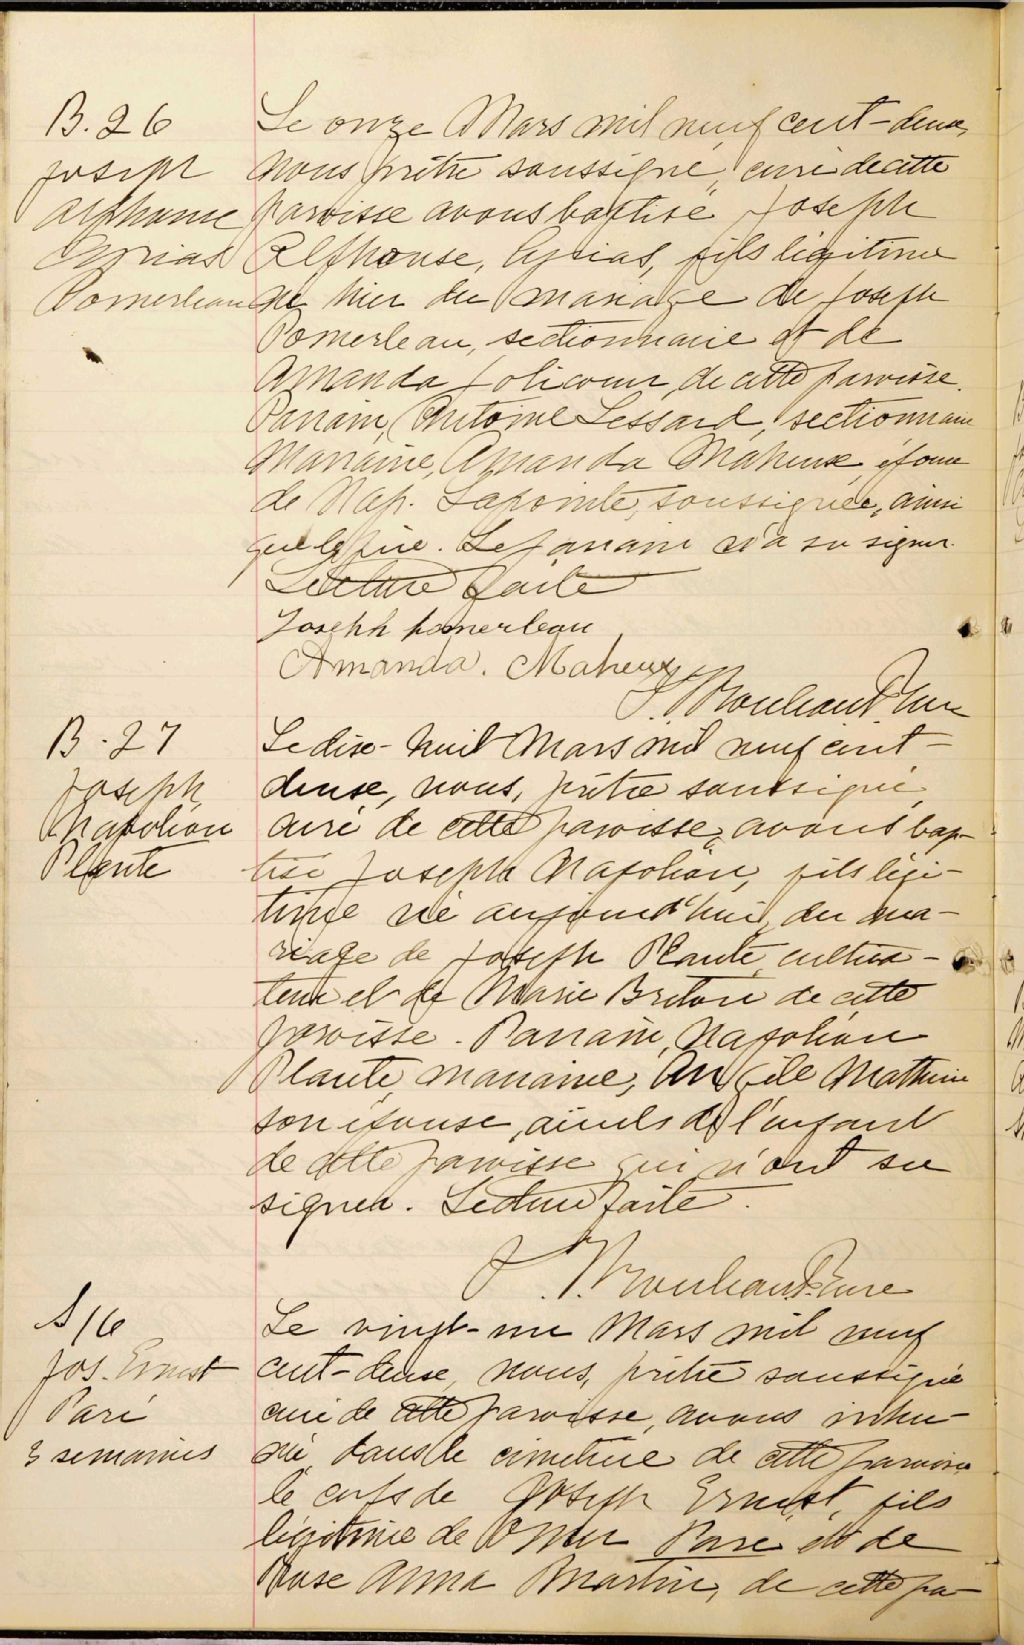 B. 26
Joseph
Alphonse
Cyrias
Pomerleau
Le onze Mars mil neuf cent-deux,
nous prêtre soussigné, curé de cette
paroisse avons baptisé Joseph
Alphonse, Cyrias, fils légitime
né hier du mariage de Joseph
Pomerleau, sectionnaire et de
Amanda Jolicoeur, de cette paroisse.
Parrain, Antoine Lessard, sectionnaire
Marraine, Amanda Maheux, épouse
de Nap. Lapointe, soussignée, ainsi
que le père. Le parrain n'a su signer.
Lecture faite
Joseph pomerleau
Amanda. Maheux
Ptre
B. 27
Joseph
Napoléon
Plante
Le dix-huit Mars mil neuf cent-
deux, nous, prêtre soussigné,
curé de cette paroisse, avons bap-
tisé Joseph Napoléon, fils légi-
time né aujourd'hui, du ma-
riage de Joseph Plante, cultiva-
teur et de Marie Breton de cette
paroisse. Parrain, Napoléon
Plante, marraine, Angèle Mathieu
son épouse, aïeuls de l'enfant
de cette paroisse qui n'ont su
signer. Lecture faite.
Ptre
S/6
Jos. Ernest
Paré
3 semaines
Le vingt-un Mars mil neuf
cent-deux, nous, prêtre soussigné
curé de cette paroisse, avons inhu-
mé dans le cimetière de cette paroisse
le corps de Joseph Ernest, fils
légitime de Omer Paré et de
Rose Anna Martin, de cette pa-